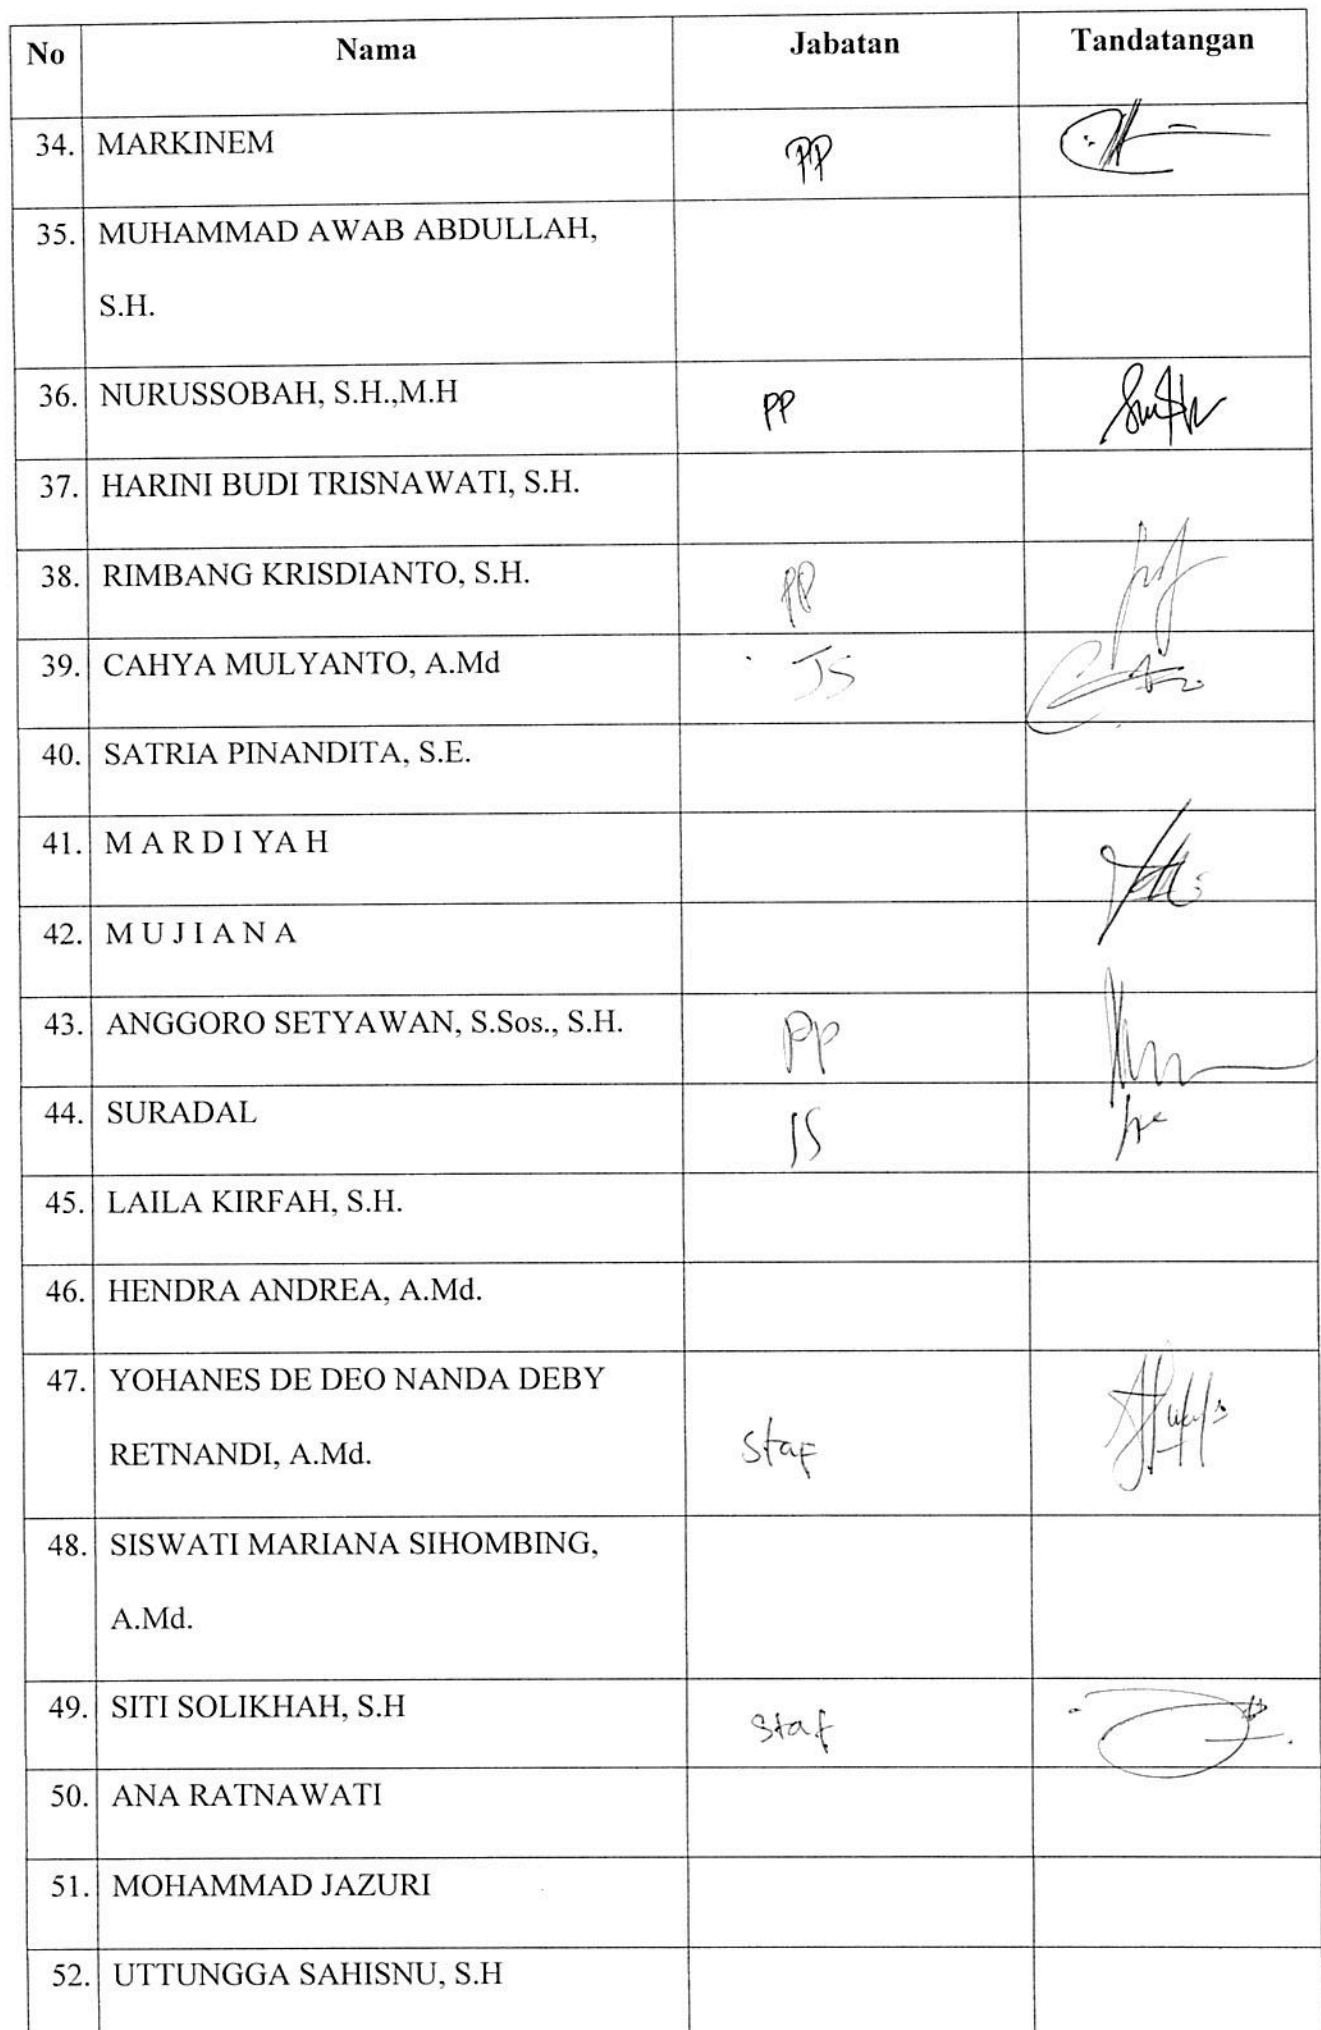 No Nama Jabatan Tandatangan
34. MARKINEM PP
35. MUHAMMAD AWAB ABDULLAH,
S.H.
36. NURUSSOBAH, S.H.,M.H PP
37. HARINI BUDI TRISNAWATI, S.H.
38. RIMBANG KRISDIANTO, S.H. PP
39. CAHYA MULYANTO, A.Md JS
40. SATRIA PINANDITA, S.E.
41. M A R D I YA H
42. M U J I A N A
43. ANGGORO SETYAWAN, S.Sos., S.H. PP
44. SURADAL JS
45. LAILA KIRFAH, S.H.
46. HENDRA ANDREA, A.Md.
47. YOHANES DE DEO NANDA DEBY
RETNANDI, A.Md. Staf
48. SISWATI MARIANA SIHOMBING,
A.Md.
49. SITI SOLIKHAH, S.H Staf
50. ANA RATNAWATI
51. MOHAMMAD JAZURI
52. UTTUNGGA SAHISNU, S.H